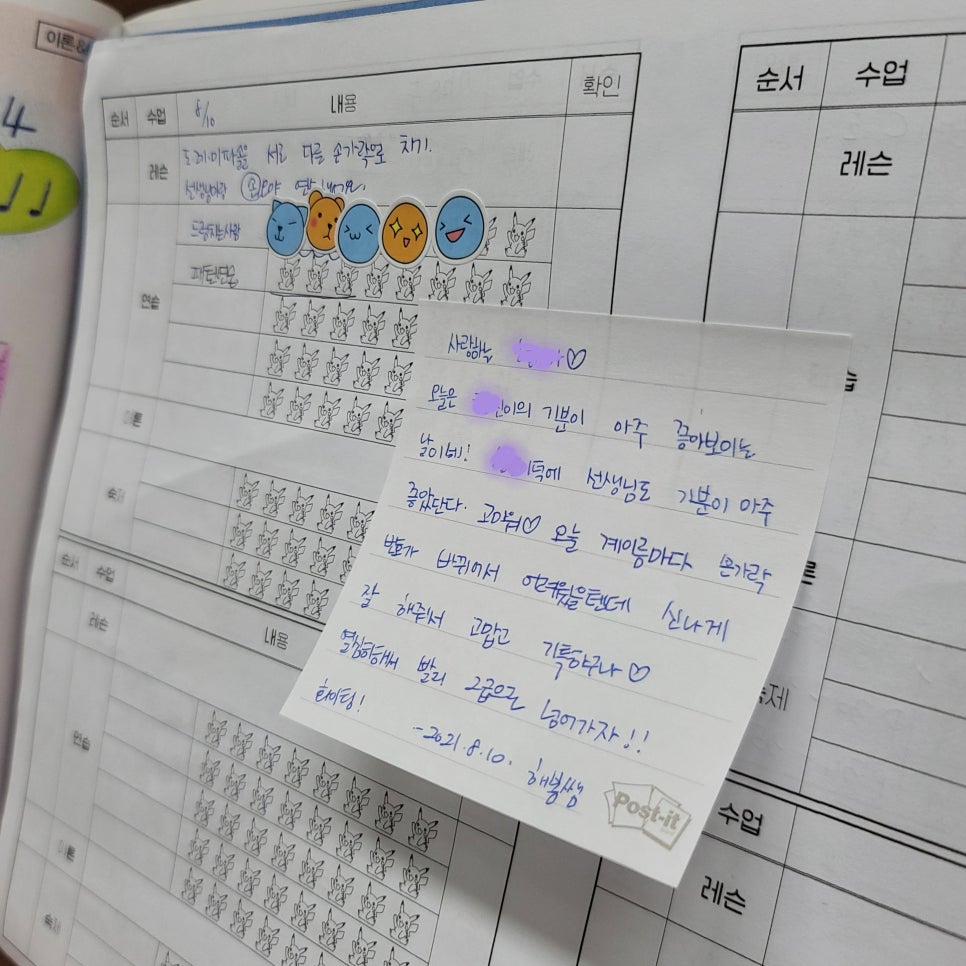 이론&
4
순서 수업 8/10 내용 확인
레슨
도레미파솔을 서로 다른 손가락으로 치기.
선생님이랑 손모양 연습
드럼치는사람
연습
이론
숙제
순서 수업 내용
레슨
연습
이론
숙제
사랑하는 ♡
오늘은 이의 기분이 아주 좋아보이는
날이네! 덕에 선생님도 기분이 아주
좋았단다. 고마워♡ 오늘 계이름마다 손가락
번호가 바뀌어서 어려웠을텐데 신나게
잘 해주어서 고맙고 기특하구나♡
열심히해서 빨리 2급으로 넘어가자!!
화이팅!
-2021.8.10. 해봄쌤
Post-it
순서 수업
레슨
습
론
숙제
수업
레슨